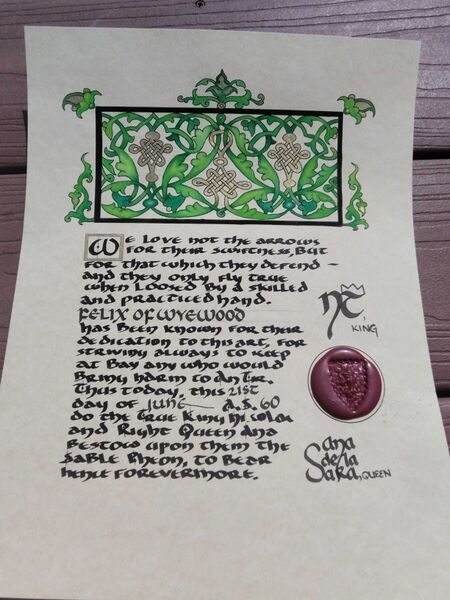 We love not the arrows
for their swiftness, But
for that which they defend —
and they only fly true
when loosed by a skilled
and practiced hand.
FELIX OF WYEWOOD
has been known for their
dedication to this art, for
striving always to keep
at bay any who would
bring harm to An Tir.
Thus today, this 21st
day of June — A.S. 60
do the true King
and Right Queen Ana
bestow upon them the
Sable Pheon, to bear
hence forevermore.
KING
Ana
de la
Sara, QUEEN